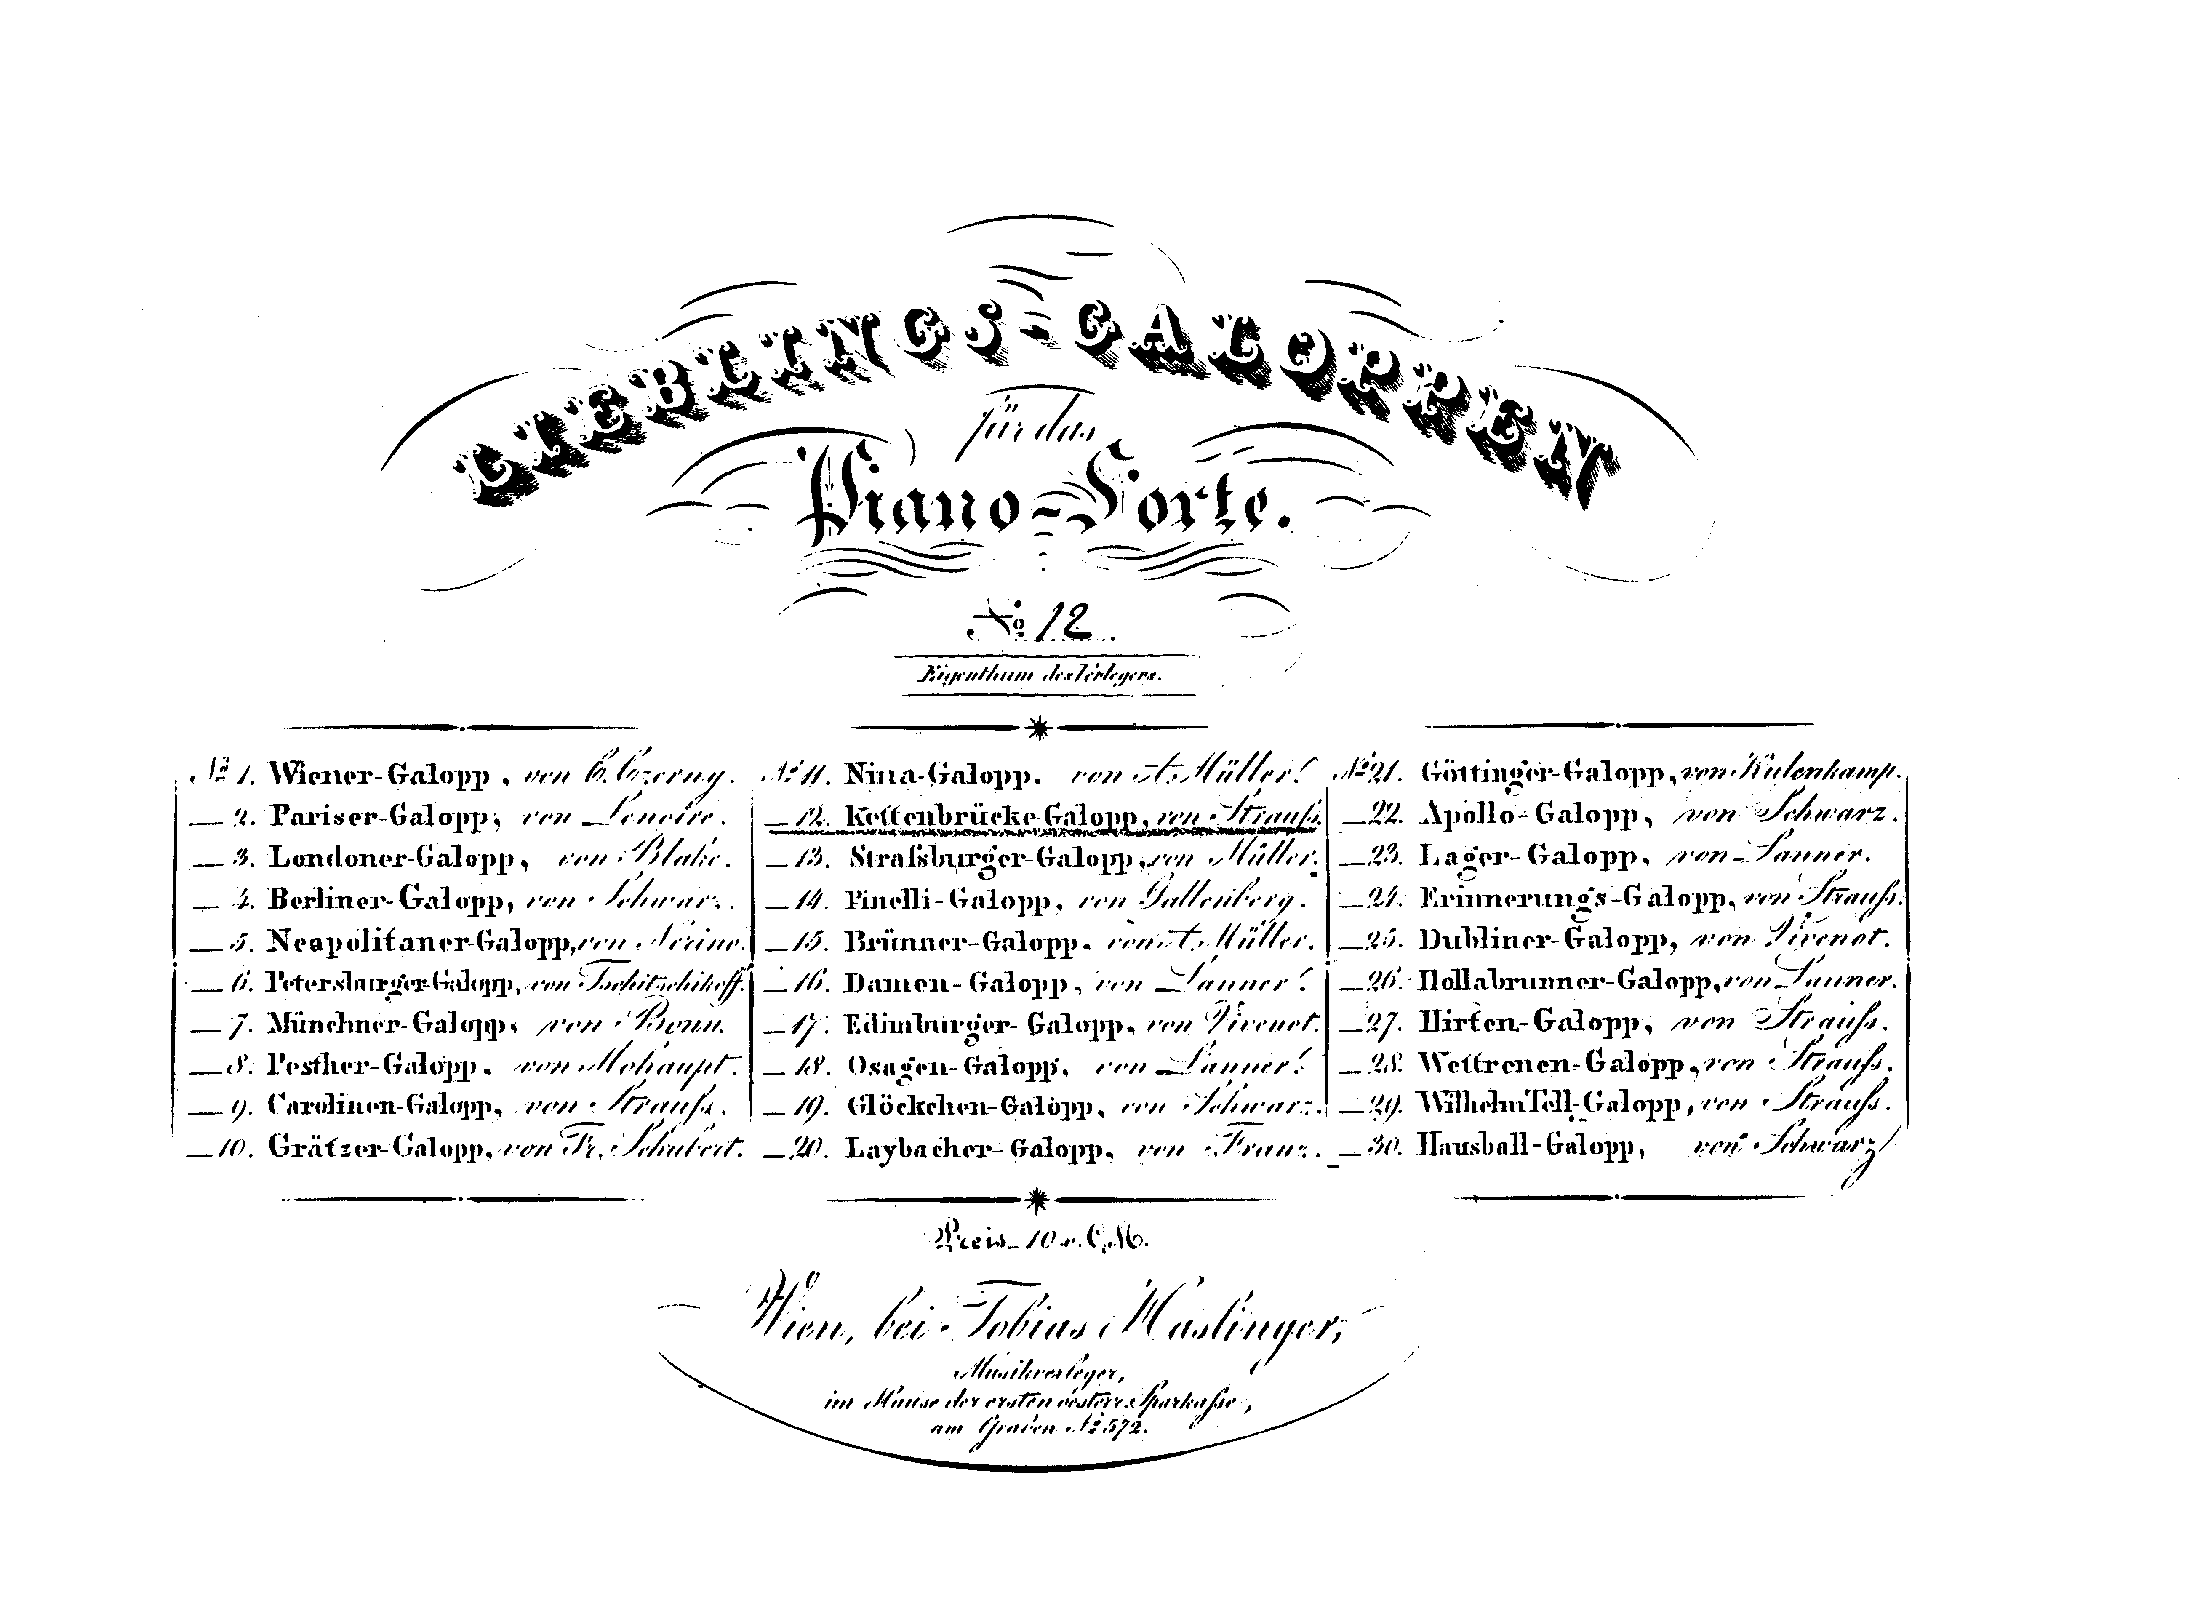 LIEBLINGS-GALOPPEN
für das
Piano-Forte.
No. 12.
Eigenthum des Verlegers.
No. 1. Wiener-Galopp, von C. Czerny.
— 2. Pariser-Galopp, von Lenoire.
— 3. Londoner-Galopp, von Blake.
— 4. Berliner-Galopp, von Schwarz.
— 5. Neapolitaner-Galopp, von Nerino.
— 6. Petersburger-Galopp, von Tschitschikoff.
— 7. Münchner-Galopp, von Bonn.
— 8. Pesther-Galopp, von Mohaupt.
— 9. Carolinen-Galopp, von Strauſs.
— 10. Grätzer-Galopp, von Fr. Schubert.
No. 11. Nina-Galopp. von A. Müller.
— 12. Kettenbrücke-Galopp, von Strauſs.
— 13. Straſsburger-Galopp, von Müller.
— 14. Pinelli-Galopp, von Gallenberg.
— 15. Brünner-Galopp. von A. Müller.
— 16. Damen-Galopp, von Lanner.
— 17. Edimburger-Galopp, von Vivenot.
— 18. Osagen-Galopp, von Lanner.
— 19. Glöckchen-Galopp, von Schwarz.
— 20. Laybacher-Galopp, von Franz.
No. 21. Göttinger-Galopp, von Kulenkamp.
— 22. Apollo-Galopp, von Schwarz.
— 23. Lager-Galopp, von Lanner.
— 24. Erinnerungs-Galopp, von Strauſs.
— 25. Dubliner-Galopp, von Vivenot.
— 26. Hollabrunner-Galopp, von Lanner.
— 27. Hirten-Galopp, von Strauſs.
— 28. Wettrenen-Galopp, von Strauſs.
— 29. Wilhelm Tell-Galopp, von Strauſs.
— 30. Hausball-Galopp, von Schwarz
Preis 10 x. C.M.
Wien, bei Tobias Haslinger,
Musikverleger,
im Hause der ersten oesterr. Sparkaſse,
am Graben No. 572.